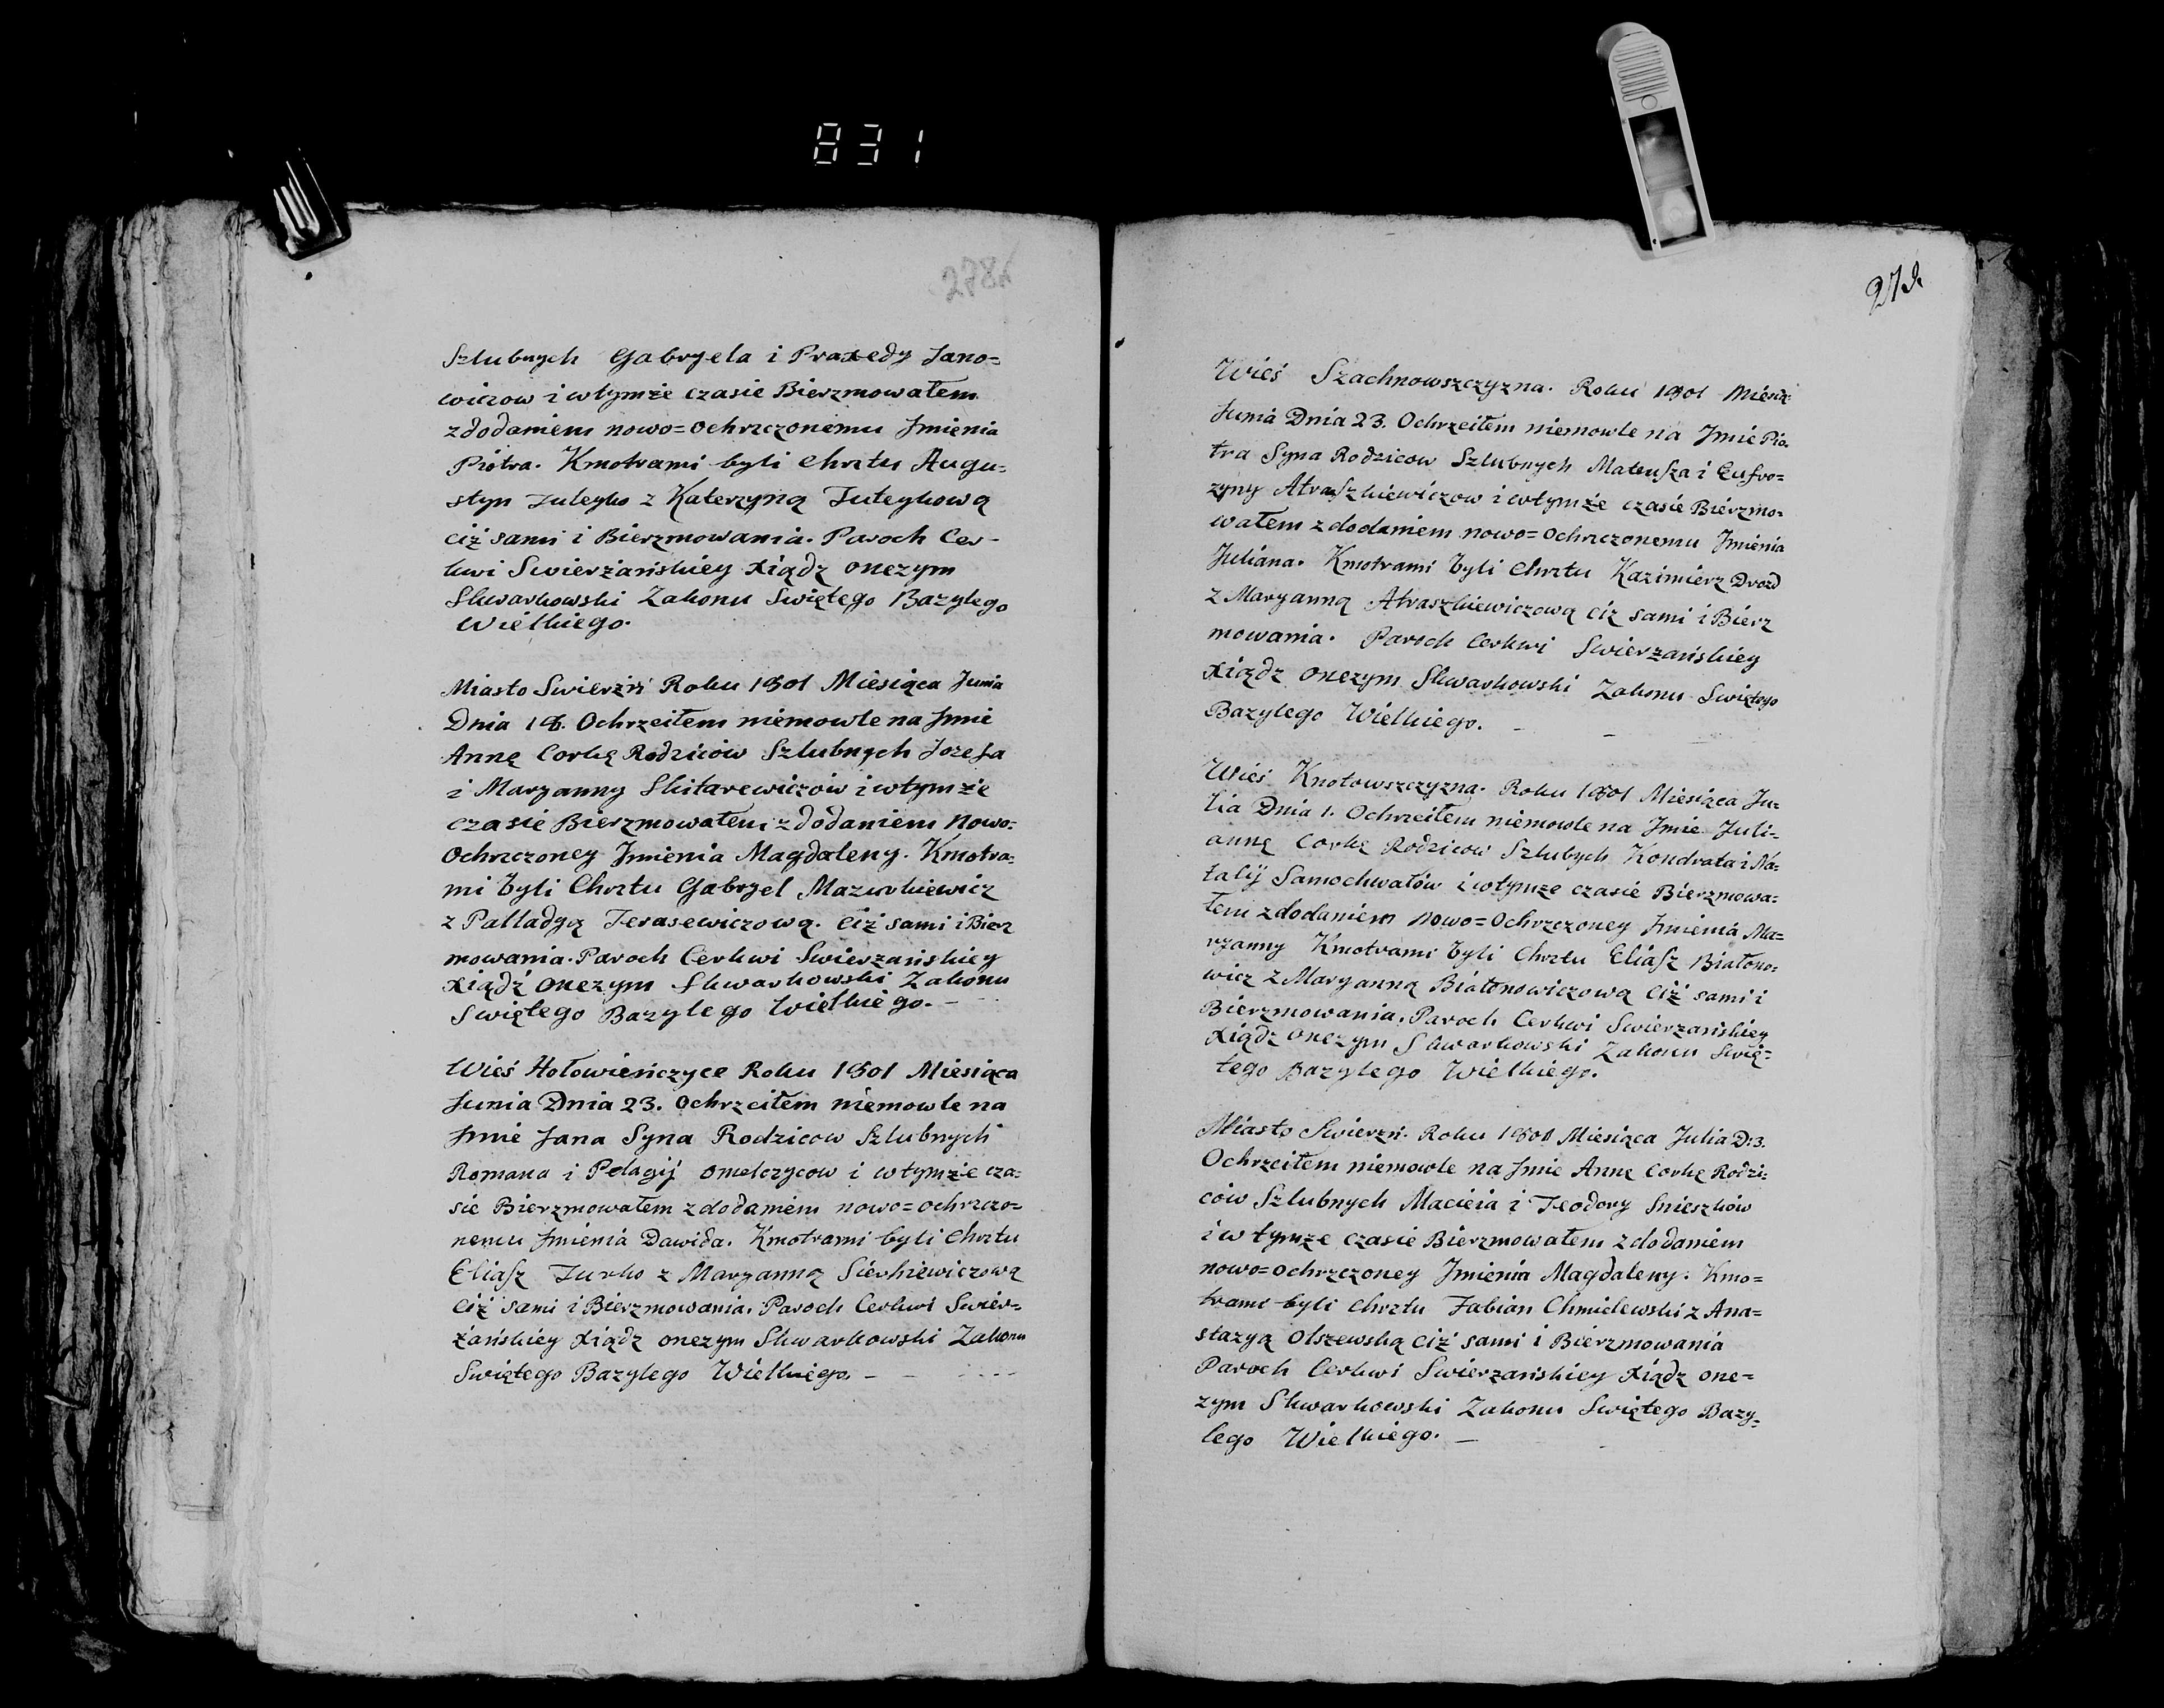 831
278v
279
Szlubnych Gabryela i Praxedy Jano=
wiczow i wtymże czasie Bierzmowałem
zdodaniem nowo=ochrzczonemu Jmienia
Piotra. Kmotrami byli Chrztu Augu=
styn Juleyko z Katerzyną Juleykową
ciż sami i Bierzmowania. Paroch Cer-
kwi Swierżańskiey Xiądz Onezym
Skwarkowski Zakonu Swiętego Bazylego
Wielkiego.
Miasto Swierżń Roku 1801 Miesiąca Junia
Dnia 18. Ochrzciłem niemowle na Jmie
Annę Corkę Rodziców Szlubnych Jozefa
i Maryanny Skitarewiczów i wtymże
czasie Bierzmowałem zdodaniem Nowo=
Ochrzczoney Jmienia Magdaleny. Kmotra=
mi byli Chrztu Gabryel Mazurkiewicz
z Palladyą Terasewiczową. Ciż sami i Bierz
mowania. Paroch Cerkwi Swierzańskiey
Xiądź Onezym Skwarkowski Zakonu
Swiętego Bazylego Wielkiego. -
Wieś Hołowieńczyce Roku 1801 Miesiąca
Junia Dnia 23. Ochrzciłem niemowle na
Jmie Jana Syna Rodzicow Szlubnych
Romana i Pelagij Omelczycow i wtymże cza=
sie Bierzmowałem zdodaniem nowo=ochrzczo=
nemu Jmienia Dawida. Kmotrami byli Chrztu
Eliasz Jurko z Maryanną Sierkiewiczową
Ciż sami i Bierzmowania. Paroch Cerkwi Swier=
żańskiey Xiądz Onezym Skwarkowski Zakonu
Swiętego Bazylego Wielkiego. -
Wieś Szachnowszczyzna. Roku 1801 Miesią:
Junia Dnia 23. Ochrzciłem niemowle na Jmie Pio
tra Syna Rodzicow Szlubnych Mateusza i Eufro=
zyny Atraszkiewiczow i wtymże czasie Bierzmo=
wałem zdodaniem nowo=ochrzczonemu Jmienia
Juliana. Kmotrami byli Chrztu Kazimierz Drozd
z Maryanną Atraszkiewiczową ciż sami i Bierz
mowania. Paroch Cerkwi Swierzańskiey
Xiądz Onezym Skwarkowski Zakonu Swiętego
Bazylego Wielkiego. -
Wieś Knotowszczyzna. Roku 1801 Miesiąca Ju=
lia Dnia 1. Ochrzciłem niemowle na Jmie Juli=
annę Corkę Rodzicow Szlubych Kondrata i Na=
talij Samochwałów i wtymże czasie Bierzmowa=
łem zdodaniem nowo=ochrzczoney Jmienia Ma=
ryanny Kmotrami byli Chrztu Eliasz Białono=
wicz z Maryanną Białonowiczową Ciż sami i
Bierzmowania. Paroch Cerkwi Swierzańskiey
Xiądz Onezym Skwarkowski Zakonu Swię=
tego Bazylego Wielkiego.
Miasto Swierzń. Roku 1801 Miesiąca Julia D: 3.
Ochrzciłem niemowle na Jmie Annę Corkę Rodzi=
ców Szlubnych Macieia i Teodory Snieszków
i w tymże czasie Bierzmowałem zdodaniem
nowo=ochrzczoney Jmienia Magdaleny. Kmo=
trami byli Chrztu Fabian Chmielewski z Ana=
stazyą Olszewską Ciż sami i Bierzmowania
Paroch Cerkwi Swierzańskiey Xiądz One=
zym Skwarkowski Zakonu Swiętego Bazy=
lego Wielkiego. -